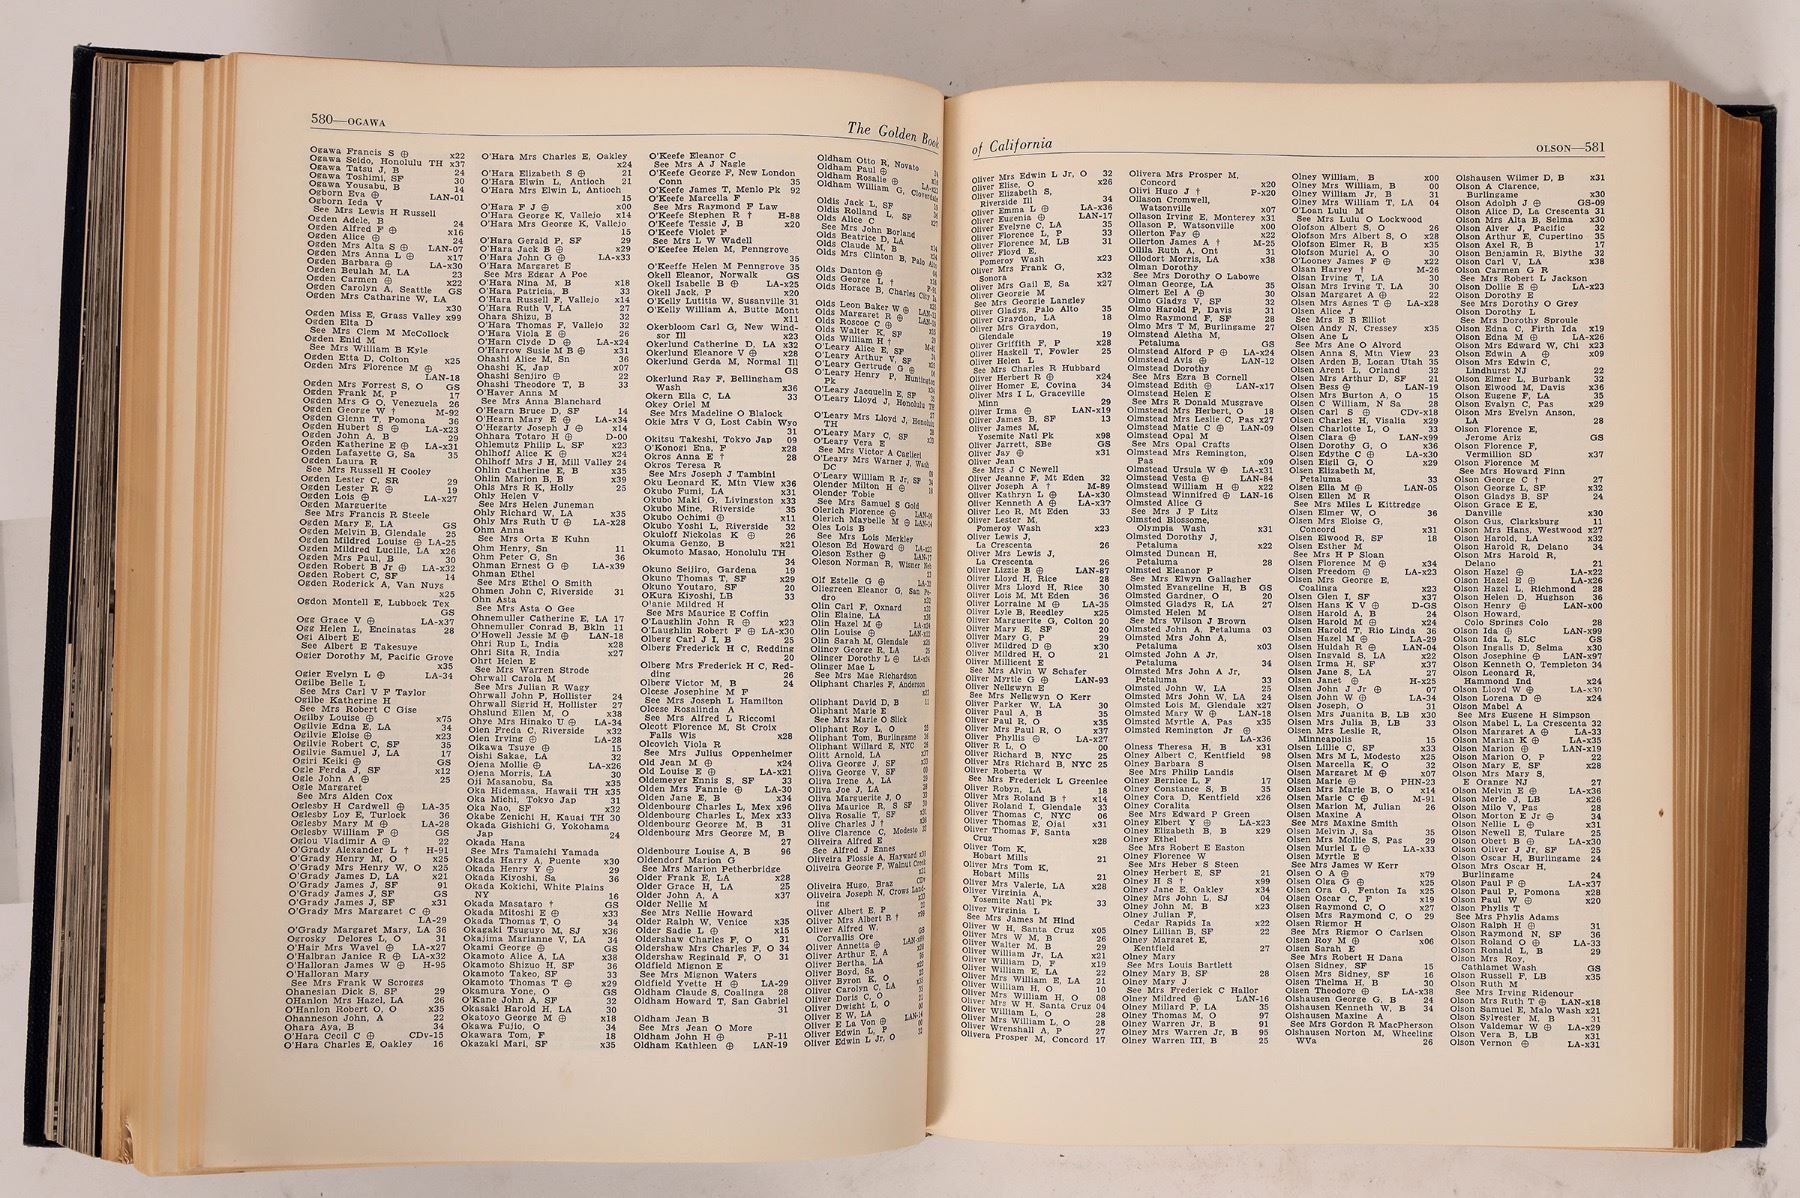 580—OGAWA
The Golden Book
Ogawa Francis S ⊕ x22
Ogawa Seido, Honolulu TH x37
Ogawa Tatsu J, B 24
Ogawa Toshimi, SF 30
Ogawa Yousabu, B 14
Ogborn Eva ⊕ LAN-01
Ogborn Ieda V
See Mrs Lewis H Russell
Ogden Adele, B 24
Ogden Alfred F ⊕ x16
Ogden Alice ⊕ 24
Ogden Mrs Alta S ⊕ LAN-07
Ogden Mrs Anna L ⊕ x17
Ogden Barbara ⊕ LA-x30
Ogden Beulah M, LA 23
Ogden Carmen ⊕ x22
Ogden Carolyn A, Seattle GS
Ogden Mrs Catharine W, LA
x30
Ogden Miss E, Grass Valley x99
Ogden Elta D
See Mrs Clem M McCollock
Ogden Enid M
See Mrs William B Kyle
Ogden Etta D, Colton x25
Ogden Mrs Florence M ⊕
LAN-18
Ogden Mrs Forrest S, O GS
Ogden Frank M, P 17
Ogden Mrs G O, Venezuela 26
Ogden George W † M-92
Ogden Glenn T, Pomona 36
Ogden Hubert S ⊕ LA-x23
Ogden John A, B 29
Ogden Katherine E ⊕ LA-x31
Ogden Lafayette G, Sa 35
Ogden Laura R
See Mrs Russell H Cooley
Ogden Lester C, SR 29
Ogden Lester R ⊕ 19
Ogden Lois ⊕ LA-x27
Ogden Marguerite
See Mrs Francis R Steele
Ogden Mary E, LA GS
Ogden Melvin B, Glendale 25
Ogden Mildred Louise ⊕ LA-25
Ogden Mildred Lucille, LA x26
Ogden Mrs Paul, B 30
Ogden Robert B Jr ⊕ LA-x32
Ogden Robert C, SF 14
Ogden Roderick A, Van Nuys
x25
Ogdon Montell E, Lubbock Tex
GS
Ogg Grace V ⊕ LA-x37
Ogg Helen L, Encinatas 28
Ogi Albert E
See Albert E Takesuye
Ogier Dorothy M, Pacific Grove
x35
Ogier Evelyn L ⊕ LA-34
Ogilbe Belle L
See Mrs Carl V F Taylor
Ogilbe Katherine H
See Mrs Robert C Gise
Ogilby Louise ⊕ x75
Ogilvie Edna E, LA 34
Ogilvie Eloise ⊕ x23
Ogilvie Robert C, SF 35
Ogilvie Samuel J, LA 17
Ogiri Keiki ⊕ GS
Ogle Ferda J, SF x12
Ogle John A ⊕ 25
Ogle Margaret
See Mrs Alden Cox
Oglesby H Cardwell ⊕ LA-35
Oglesby Loy E, Turlock 36
Oglesby Mary M ⊕ LA-28
Oglesby William F ⊕ GS
Oglou Vladimir A ⊕ 22
O'Grady Alexander L † H-91
O'Grady Henry M, O x25
O'Grady Mrs Henry W, O x25
O'Grady James D, LA x21
O'Grady James J, SF 91
O'Grady James J, SF GS
O'Grady James J, SF x31
O'Grady Mrs Margaret C ⊕
LA-29
O'Grady Margaret Mary, LA 36
Ogrosky Delores L, O 31
O'Hair Mrs Wavel ⊕ LA-x27
O'Halbran Janice R ⊕ LA-x32
O'Halloran James W ⊕ H-95
O'Halloran Mary
See Mrs Frank W Scroggs
Ohanesian Dick S, SF 29
OHanlon Mrs Hazel, LA 26
O'Hanlon Robert O, O x35
Ohanneson John, A 22
Ohara Aya, B 34
O'Hara Cecil C ⊕ CDv-15
O'Hara Charles E, Oakley 16
O'Hara Mrs Charles E, Oakley
x24
O'Hara Elizabeth S ⊕ 21
O'Hara Elwin L, Antioch 21
O'Hara Mrs Elwin L, Antioch
15
O'Hara F J ⊕ x00
O'Hara George K, Vallejo x14
O'Hara Mrs George K, Vallejo
15
O'Hara Gerald P, SF 29
O'Hara Jack B ⊕ x29
O'Hara John G ⊕ LA-x33
O'Hara Margaret E
See Mrs Edgar A Poe
O'Hara Nina M, B x18
O'Hara Patricia, B 33
O'Hara Russell F, Vallejo x14
O'Hara Ruth V, LA 27
Ohara Shizu, B 32
O'Hara Thomas F, Vallejo 32
O'Hara Viola E ⊕ 26
O'Harn Clyde D ⊕ LA-x24
O'Harrow Susie M B ⊕ x31
Ohashi Alice M, Sn 36
Ohashi K, Jap x07
Ohashi Senjiro ⊕ 22
Ohashi Theodore T, B 33
O'Haver Anna M
See Mrs Anna Blanchard
O'Hearn Bruce D, SF 14
O'Hearn Mary E ⊕ LA-x34
O'Hegarty Joseph J ⊕ x14
Ohhara Totaro H ⊕ D-00
Ohlemutz Philip L, SF x23
Ohlhoff Alice K ⊕ x24
Ohlhoff Mrs J H, Mill Valley 24
Ohlin Catherine E, B x35
Ohlin Marion B, B x39
Ohls Mrs R K, Holly 25
Ohly Helen V
See Mrs Helen Juneman
Ohly Richard W, LA x35
Ohly Mrs Ruth U ⊕ LA-x28
Ohm Anna
See Mrs Orta E Kuhn
Ohm Henry, Sn 11
Ohm Peter G, Sn 36
Ohman Ernest G ⊕ LA-x39
Ohman Ethel
See Mrs Ethel O Smith
Ohmen John C, Riverside 31
Ohn Asta
See Mrs Asta O Gee
Ohnemuller Catherine E, LA 17
Ohnemuller Conrad B, Bkln 11
O'Howell Jessie M ⊕ LAN-18
Ohri Rup L, India x28
Ohri Sita R, India x27
Ohrt Helen E
See Mrs Warren Strode
Ohrwall Carola M
See Mrs Julian R Wagy
Ohrwall John P, Hollister 24
Ohrwall Sigrid H, Hollister 27
Ohslund Ellen M, O x38
Ohye Mrs Hinako U ⊕ LA-34
Oien Freda C, Riverside x32
Oien Irving ⊕ LA-28
Oikawa Tsuye ⊕ 15
Oishi Sakae, LA 32
Ojena Mollie ⊕ LA-x26
Ojena Morris, LA 30
Oji Masanobu, Sa x35
Oka Hidemasa, Hawaii TH x35
Oka Michi, Tokyo Jap 31
Oka Nao, SF x32
Okabe Zenichi H, Kauai TH 30
Okada Gishichi G, Yokohama
Jap 24
Okada Hana
See Mrs Tamaichi Yamada
Okada Harry A, Puente x30
Okada Henry Y ⊕ 29
Okada Kiyoshi, Sa 36
Okada Kokichi, White Plains
NY 16
Okada Masataro † GS
Okada Mitoshi E ⊕ x33
Okada Thomas T, O 34
Okagaki Tsuguyo M, SJ x36
Okajima Marianne V, LA 34
Okami George ⊕ GS
Okamoto Alice A, LA x38
Okamoto Shizuo H, SF 36
Okamoto Takeo, SF 33
Okamoto Thomas T ⊕ x29
Okamura Yone, O GS
O'Kane John A, SF 32
Okasaki Harold H, LA 30
Okatoyo George M ⊕ x18
Okawa Fujio, O 34
Okawara Tom, F 18
Okazaki Mari, SF x35
O'Keefe Eleanor C
See Mrs A J Nagle
O'Keefe George F, New London
Conn 35
O'Keefe James T, Menlo Pk 92
O'Keefe Marcella F
See Mrs Raymond F Law
O'Keefe Stephen R † H-88
O'Keefe Tessie J, B x20
O'Keefe Violet F
See Mrs L W Wadell
O'Keefee Helen M, Penngrove
35
O'Keeffe Helen M Penngrove 35
Okell Eleanor, Norwalk GS
Okell Isabelle B ⊕ LA-x25
Okell Jack, P x20
O'Kelly Lutitia W, Susanville 31
O'Kelly William A, Butte Mont
x11
Okerbloom Carl G, New Wind-
sor Ill x23
Okerlund Catherine D, LA x32
Okerlund Eleanore V ⊕ x28
Okerlund Gerda M, Normal Ill
GS
Okerlund Ray F, Bellingham
Wash x36
Okern Ella C, LA 33
Okey Oriel M
See Mrs Madeline O Blalock
Okie Mrs V G, Lost Cabin Wyo
31
Okitsu Takeshi, Tokyo Jap 09
O'Konogi Ena, F x28
Okros Anna E † 28
Okros Teresa R
See Mrs Joseph J Tambini
Oku Leonard K, Mtn View x36
Okubo Fumi, LA x31
Okubo Maki G, Livingston x33
Okubo Mine, Riverside 35
Okubo Ochimi ⊕ x11
Okubo Yoshi L, Riverside 32
Okuloff Nickolas K ⊕ 26
Okuma Genzo, B x21
Okumoto Masao, Honolulu TH
34
Okuno Seijiro, Gardena 19
Okuno Thomas T, SF x29
Okuno Youtaro, SF 20
OKura Kiyoshi, LB 33
O'lanie Mildred H
See Mrs Maurice E Coffin
O'Laughlin John R ⊕ x23
O'Laughlin Robert F ⊕ LA-x30
Olberg Carl J I, B 25
Olberg Frederick H C, Redding
20
Olberg Mrs Frederick H C, Red-
ding 26
Olberg Victor M, B 24
Olcese Josephine M F
See Mrs Joseph L Hamilton
Olcese Rosalinda A
See Mrs Alfred L Riccomi
Olcott Florence M, St Croix
Falls Wis x28
Olcovich Viola R
See Mrs Julius Oppenheimer
Old Jean M ⊕ x24
Old Louise E ⊕ LA-x21
Oldemeyer Ennis S, SF 33
Olden Mrs Fannie ⊕ LA-30
Olden Jane E, B x34
Oldenbourg Charles L, Mex x96
Oldenbourg Charles L, Mex x33
Oldenbourg George M, B 31
Oldenbourg Mrs George M, B
27
Oldenbourg Louise A, B 96
Oldendorf Marion G
See Mrs Marion Petherbridge
Older Frank E, LA x28
Older Grace H, LA 25
Older John A, A x37
Older Nellie M
See Mrs Nellie Howard
Older Ralph W, Venice x35
Older Sadie L ⊕ x15
Oldershaw Charles F, O 31
Oldershaw Mrs Charles F, O 34
Oldershaw Reginald F, O 31
Oldfield Mignon E
See Mrs Mignon Waters
Oldfield Yvette H ⊕ LA-29
Oldham Claude S, Coalinga 28
Oldham Howard T, San Gabriel
31
Oldham Jean B
See Mrs Jean O More
Oldham John H ⊕ P-11
Oldham Kathleen ⊕ LAN-19
Oldham Otto R, Novato
Oldham Paul ⊕
Oldham Rosalie ⊕
Oldham William G, Cloverdale
Oldis Jack L, SF
Oldis Rolland L, SF
Olds Alice C
See Mrs John Borland
Olds Beatrice D, LA
Olds Claude M, B
Olds Mrs Clinton B, Palo Alto
Olds Danton ⊕
Olds George L †
Olds Horace B, Charles City Ia
Olds Leon Baker W ⊕
Olds Margaret R ⊕
Olds Roscoe C ⊕
Olds Walter K, SF
Olds William H †
O'Leary Alice E, SF
O'Leary Arthur V, SF
O'Leary Gertrude G ⊕
O'Leary Henry P, Huntington
Pk
O'Leary Jacquelin E, SF
O'Leary Lloyd J, Honolulu TH
O'Leary Mrs Lloyd J, Honolulu
TH
O'Leary Mary C, SF
O'Leary Vera E
See Mrs Victor A Caglieri
O'Leary Mrs Warner J, Wash
DC
O'Leary William R Jr, SF
Olender Milton H ⊕
Olender Tobie
See Mrs Samuel S Gold
Olerich Florence ⊕
Olerich Maybelle M ⊕
Oles Lois B
See Mrs Lois Merkley
Oleson Ed Howard ⊕
Oleson Esther ⊕
Oleson Norman R, Wisner Neb
Olf Estelle G ⊕
Oliegreen Eleanor G, San Pe-
dro
Olin Carl F, Oxnard
Olin Elaine, LA
Olin Hazel M ⊕
Olin Louise ⊕
Olin Sarah M, Glendale
Olincy George R, LA
Olinger Dorothy L ⊕
Olinger Mae L
See Mrs Mae Richardson
Oliphant Charles F, Anderson
Oliphant David D, B
Oliphant Marie E
See Mrs Marie O Slick
Oliphant Roy L, O
Oliphant Tom, Burlingame
Oliphant Willard E, NYC
Olitt Arnold, LA
Oliva George J, SF
Oliva George V, SF
Oliva Irene A, LA
Oliva Joe J, LA
Oliva Marguerite J, O
Oliva Maurice R, S SF
Oliva Rosalie T, SF
Olive Charles J †
Olive Clarence C, Modesto
Oliveira Alfred E
See Alfred J Ennes
Oliveira Flossie A, Hayward
Oliveira George F, Walnut Creek
Oliveira Hugo, Braz
Oliveira Joseph N, Crows Land-
ing
Oliver Albert E, P
Oliver Mrs Albert R †
Oliver Alfred W,
Corvallis Ore
Oliver Annetta ⊕
Oliver Arthur E, A
Oliver Bertha, LA
Oliver Boyd, Sa
Oliver Byron K, O
Oliver Carolyn C, LA
Oliver Doris C, O
Oliver Dwight L, O
Oliver E W, LA
Oliver E La Von ⊕
Oliver Edwin L, P
Oliver Edwin L Jr, O
of California
OLSON—581
Oliver Mrs Edwin L Jr, O 32
Oliver Elise, O x26
Oliver Elizabeth S,
Riverside Ill 34
Oliver Emma L ⊕ LA-x36
Oliver Eugenia ⊕ LAN-17
Oliver Evelyne C, LA 35
Oliver Florence L, P 33
Oliver Florence M, LB 31
Oliver Floyd E,
Pomeroy Wash x23
Oliver Mrs Frank G,
Sonora x32
Oliver Mrs Gail E, Sa x27
Oliver Georgie M
See Mrs Georgie Langley
Oliver Gladys, Palo Alto 35
Oliver Graydon, LA 18
Oliver Mrs Graydon,
Glendale 19
Oliver Griffith F, P x28
Oliver Haskell T, Fowler 25
Oliver Helen L
See Mrs Charles R Hubbard
Oliver Herbert R ⊕ x24
Oliver Homer E, Covina 34
Oliver Mrs I L, Graceville
Minn 29
Oliver Irma ⊕ LAN-x19
Oliver James B, SF 13
Oliver James M,
Yosemite Natl Pk x98
Oliver Jarrett, SBe GS
Oliver Jay ⊕ x31
Oliver Jean
See Mrs J C Newell
Oliver Jeanne F, Mt Eden 32
Oliver Joseph A † M-89
Oliver Kathryn L ⊕ LA-x30
Oliver Kenneth A ⊕ LA-x37
Oliver Leo R, Mt Eden 33
Oliver Lester M,
Pomeroy Wash x23
Oliver Lewis J,
La Crescenta 26
Oliver Mrs Lewis J,
La Crescenta 26
Oliver Lizzie B ⊕ LAN-87
Oliver Lloyd H, Rice 28
Oliver Mrs Lloyd H, Rice 30
Oliver Lois M, Mt Eden 36
Oliver Lorraine M ⊕ LA-35
Oliver Lyle B, Reedley x25
Oliver Marguerite G, Colton 20
Oliver Mary E, SF 20
Oliver Mary G, P 29
Oliver Mildred D ⊕ x30
Oliver Mildred H, O 21
Oliver Millicent E
See Mrs Alvin W Schafer
Oliver Myrtle G ⊕ LAN-93
Oliver Nellgwyn E
See Mrs Nellgwyn O Kerr
Oliver Parker W, LA 30
Oliver Paul A, B 35
Oliver Paul R, O x35
Oliver Mrs Paul R, O x37
Oliver Phyllis ⊕ LA-x27
Oliver R L, O 00
Oliver Richard B, NYC 25
Oliver Mrs Richard B, NYC 25
Oliver Roberta W
See Mrs Frederick L Greenlee
Oliver Robyn, LA 18
Oliver Mrs Roland B † x14
Oliver Roland I, Glendale 33
Oliver Thomas C, NYC 06
Oliver Thomas E, Ojai x31
Oliver Thomas F, Santa
Cruz x28
Oliver Tom K,
Hobart Mills 21
Oliver Mrs Tom K,
Hobart Mills 21
Oliver Mrs Valerie, LA x28
Oliver Virginia A,
Yosemite Natl Pk 33
Oliver Virginia L
See Mrs James M Hind
Oliver W H, Santa Cruz x05
Oliver Mrs W M, B 26
Oliver Walter M, B 29
Oliver William Jr, LA x21
Oliver William D, F x19
Oliver William E, LA 22
Oliver Mrs William E, LA 21
Oliver William H, O 10
Oliver Mrs William H, O 08
Oliver Mrs W H, Santa Cruz 04
Oliver William L, O 28
Oliver Mrs William L, O 28
Oliver Wrenshall A, P 27
Olivera Prosper M, Concord 17
Olivera Mrs Prosper M,
Concord x20
Olivi Hugo J † P-x20
Ollason Cromwell,
Watsonville x07
Ollason Irving E, Monterey x31
Ollason P, Watsonville x00
Ollerton Fay ⊕ x22
Ollerton James A † M-25
Ollila Ruth A, Ont 31
Ollodort Morris, LA x38
Olman Dorothy
See Mrs Dorothy O Labowe
Olman George, LA 35
Olmert Eel A ⊕ 30
Olmo Gladys V, SF 32
Olmo Harold P, Davis 31
Olmo Raymond F, SF 28
Olmo Mrs T M, Burlingame 27
Olmstead Aletha M,
Petaluma GS
Olmstead Alford P ⊕ LA-x24
Olmstead Avis ⊕ LAN-12
Olmstead Dorothy
See Mrs Ezra B Cornell
Olmstead Edith ⊕ LAN-x17
Olmstead Helen E
See Mrs R Donald Musgrave
Olmstead Mrs Herbert, O 18
Olmstead Mrs Leslie C, Pas x27
Olmstead Matie C ⊕ LAN-09
Olmstead Opal M
See Mrs Opal Crafts
Olmstead Mrs Remington,
Pas x09
Olmstead Ursula W ⊕ LA-x31
Olmstead Vesta ⊕ LAN-84
Olmstead William H ⊕ x22
Olmstead Winnifred ⊕ LAN-16
Olmsted Alice G
See Mrs J F Litz
Olmsted Blossome,
Olympia Wash x31
Olmsted Dorothy J,
Petaluma x22
Olmsted Duncan H,
Petaluma 28
Olmsted Eleanor P
See Mrs Elwyn Gallagher
Olmsted Evangeline H, B GS
Olmsted Gardner, O 20
Olmsted Gladys R, LA 27
Olmsted Helen M
See Mrs Wilson J Brown
Olmsted John A, Petaluma 03
Olmsted Mrs John A,
Petaluma x03
Olmsted John A Jr,
Petaluma 34
Olmsted Mrs John A Jr,
Petaluma 33
Olmsted John W, LA 25
Olmsted Mrs John W, LA 24
Olmsted Lois M, Glendale x27
Olmsted Mary W ⊕ LAN-18
Olmsted Myrtle A, Pas x35
Olmsted Remington Jr ⊕
LA-x36
Olness Theresa H, B x31
Olney Albert C, Kentfield 98
Olney Barbara S
See Mrs Philip Landis
Olney Bernice L, F 17
Olney Constance S, B 35
Olney Cora D, Kentfield x26
Olney Coralita
See Mrs Edward P Green
Olney Elbert Y ⊕ LA-x23
Olney Elizabeth B, B x29
Olney Ethel
See Mrs Robert E Easton
Olney Florence W
See Mrs Heber S Steen
Olney Herbert E, SF 21
Olney H S † x99
Olney Jane E, Oakley x34
Olney Mrs John L, SJ 04
Olney John M, B x23
Olney Julian F,
Cedar Rapids Ia x22
Olney Lillian B, SF 22
Olney Margaret E,
Kentfield 27
Olney Mary
See Mrs Louis Bartlett
Olney Mary B, SF 28
Olney Mary J
See Mrs Frederick C Hallor
Olney Mildred ⊕ LAN-16
Olney Millard P, LA 35
Olney Thomas M, O 97
Olney Warren Jr, B 91
Olney Mrs Warren Jr, B 95
Olney Warren III, B 25
Olney William, B x00
Olney Mrs William, B 00
Olney William Jr, B 31
Olney Mrs William T, LA 04
O'Loan Lulu M
See Mrs Lulu O Lockwood
Olofson Albert S, O 26
Olofson Mrs Albert S, O x28
Olofson Elmer R, B x35
Olofson Muriel A, O 30
O'Looney James F ⊕ x22
Olsan Harvey † M-26
Olsan Irving T, LA 30
Olsan Mrs Irving T, LA 30
Olsan Margaret A ⊕ 22
Olsen Mrs Agnes T ⊕ LA-x28
Olsen Alice J
See Mrs E B Elliot
Olsen Andy N, Cressey x35
Olsen Ane L
See Mrs Ane O Alvord
Olsen Anna S, Mtn View 23
Olsen Arden B, Logan Utah 35
Olsen Arent L, Orland 32
Olsen Mrs Arthur D, SF 21
Olsen Bess ⊕ LAN-19
Olsen Mrs Burton A, O 15
Olsen C William, N Sa 28
Olsen Carl S ⊕ CDv-x18
Olsen Charles H, Visalia x29
Olsen Charlotte L, O 33
Olsen Clara ⊕ LAN-x99
Olsen Dorothy G, O x36
Olsen Edythe C ⊕ LA-x30
Olsen Eigil G, O x29
Olsen Elizabeth M,
Petaluma 33
Olsen Ella M ⊕ LAN-05
Olsen Ellen M R
See Mrs Miles L Kittredge
Olsen Elmer W, O 36
Olsen Mrs Eloise G,
Concord x31
Olsen Elwood R, SF 18
Olsen Esther M
See Mrs H P Sloan
Olsen Florence M ⊕ x34
Olsen Freedom ⊕ LA-x23
Olsen Mrs George E,
Coalinga x23
Olsen Glen I, SF x37
Olsen Hans K V ⊕ D-GS
Olsen Harold A, B 24
Olsen Harold M ⊕ x24
Olsen Harold T, Rio Linda 36
Olsen Hazel M ⊕ LA-29
Olsen Huldah R ⊕ LAN-04
Olsen Ingvald S, LA x22
Olsen Irma H, SF x37
Olsen Jane S, LA 27
Olsen Janet ⊕ H-x25
Olsen John J Jr ⊕ 07
Olsen John W ⊕ LA-34
Olsen Joseph, O 31
Olsen Mrs Juanita B, LB x30
Olsen Mrs Julia B, LB 33
Olsen Mrs Leslie R,
Minneapolis 15
Olsen Lillie C, SF x33
Olsen Mrs M L, Modesto x25
Olsen Marcella K, O 32
Olsen Margaret M ⊕ x07
Olsen Marie ⊕ PHN-23
Olsen Marie B, O x14
Olsen Marie C ⊕ M-91
Olsen Marion M, Julian 26
Olsen Maxine A
See Mrs Maxine Smith
Olsen Melvin J, Sa 35
Olsen Mrs Mollie S, Pas 29
Olsen Muriel L ⊕ LA-x33
Olsen Myrtle E
See Mrs James W Kerr
Olsen O A ⊕ x79
Olsen Olga G ⊕ x25
Olsen Ora G, Fenton Ia x25
Olsen Oscar C, F x19
Olsen Raymond C, O x27
Olsen Mrs Raymond C, O 29
Olsen Rigmor H
See Mrs Rigmor O Carlsen
Olsen Roy M ⊕ x06
Olsen Sarah E
See Mrs Robert H Dana
Olsen Sidney, SF 15
Olsen Mrs Sidney, SF 16
Olsen Thelma H, B 30
Olsen Theodore ⊕ LA-x38
Olshausen George G, B 24
Olshausen Kenneth W, B 34
Olshausen Maxine A
See Mrs Gordon R MacPherson
Olshausen Norton M, Wheeling
WVa 26
Olshausen Wilmer D, B x31
Olson A Clarence,
Burlingame x30
Olson Adolph J ⊕ GS-09
Olson Alice D, La Crescenta 31
Olson Mrs Alta B, Selma x30
Olson Alver J, Pacific 32
Olson Arthur E, Cupertino 35
Olson Axel R, B 17
Olson Benjamin R, Blythe 32
Olson Carl V, LA x38
Olson Carmen G R
See Mrs Robert L Jackson
Olson Dollie E ⊕ LA-x23
Olson Dorothy E
See Mrs Dorothy O Grey
Olson Dorothy L
See Mrs Dorothy Sproule
Olson Edna C, Firth Ida x19
Olson Edna M ⊕ LA-x26
Olson Mrs Edward W, Chi x23
Olson Edwin A ⊕ x09
Olson Mrs Edwin C,
Lindhurst NJ 22
Olson Elmer L, Burbank 32
Olson Elwood M, Davis x36
Olson Eugene F, LA 35
Olson Evalyn C, Pas x29
Olson Mrs Evelyn Anson,
LA 28
Olson Florence E,
Jerome Ariz GS
Olson Florence F,
Vermillion SD x37
Olson Florence M
See Howard Finn
Olson George C † 27
Olson George L, SF x32
Olson Gladys B, SF 24
Olson Grace E E,
Danville x30
Olson Gus, Clarksburg 11
Olson Mrs Hans, Westwood x27
Olson Harold, LA x32
Olson Harold R, Delano 34
Olson Mrs Harold R,
Delano 21
Olson Hazel ⊕ LA-x22
Olson Hazel E ⊕ LA-x26
Olson Hazel L, Richmond 28
Olson Helen D, Hughson 36
Olson Henry ⊕ LAN-x00
Olson Howard,
Colo Springs Colo 28
Olson Ida ⊕ LAN-x99
Olson Ida L, SLC GS
Olson Ingalls D, Selma x30
Olson Josephine ⊕ LAN-x97
Olson Kenneth O, Templeton 34
Olson Leonard R,
Hammond Ind x24
Olson Lloyd W ⊕ LA-x30
Olson Lorena D ⊕ x24
Olson Mabel A
See Mrs Eugene H Simpson
Olson Mabel L, La Crescenta 32
Olson Margaret A ⊕ LA-33
Olson Marian K ⊕ LA-x35
Olson Marion ⊕ LAN-x19
Olson Marion O, P 22
Olson Mary E, SF x28
Olson Mrs Mary S,
E Orange NJ 27
Olson Melvin E ⊕ LA-x36
Olson Merle J, LB x26
Olson Milo V, Pas 28
Olson Morton E Jr ⊕ 34
Olson Nellie L ⊕ x31
Olson Newell E, Tulare 25
Olson Obert B ⊕ LA-x30
Olson Oliver J Jr, SF 25
Olson Oscar H, Burlingame 24
Olson Mrs Oscar H,
Burlingame 24
Olson Paul F ⊕ LA-x37
Olson Paul V, Pomona x28
Olson Paul W ⊕ x20
Olson Phylis T
See Mrs Phylis Adams
Olson Ralph H ⊕ 31
Olson Raymond N, SF 36
Olson Roland O ⊕ LA-33
Olson Ronald L, B 29
Olson Mrs Roy,
Cathlamet Wash GS
Olson Russell F, LB x35
Olson Ruth M
See Mrs Irving Ridenour
Olson Mrs Ruth T ⊕ LAN-x18
Olson Samuel E, Malo Wash x21
Olson Sylvester M, B 31
Olson Valdemar W ⊕ LA-x29
Olson Vera B, LB x31
Olson Vernon ⊕ LA-x31